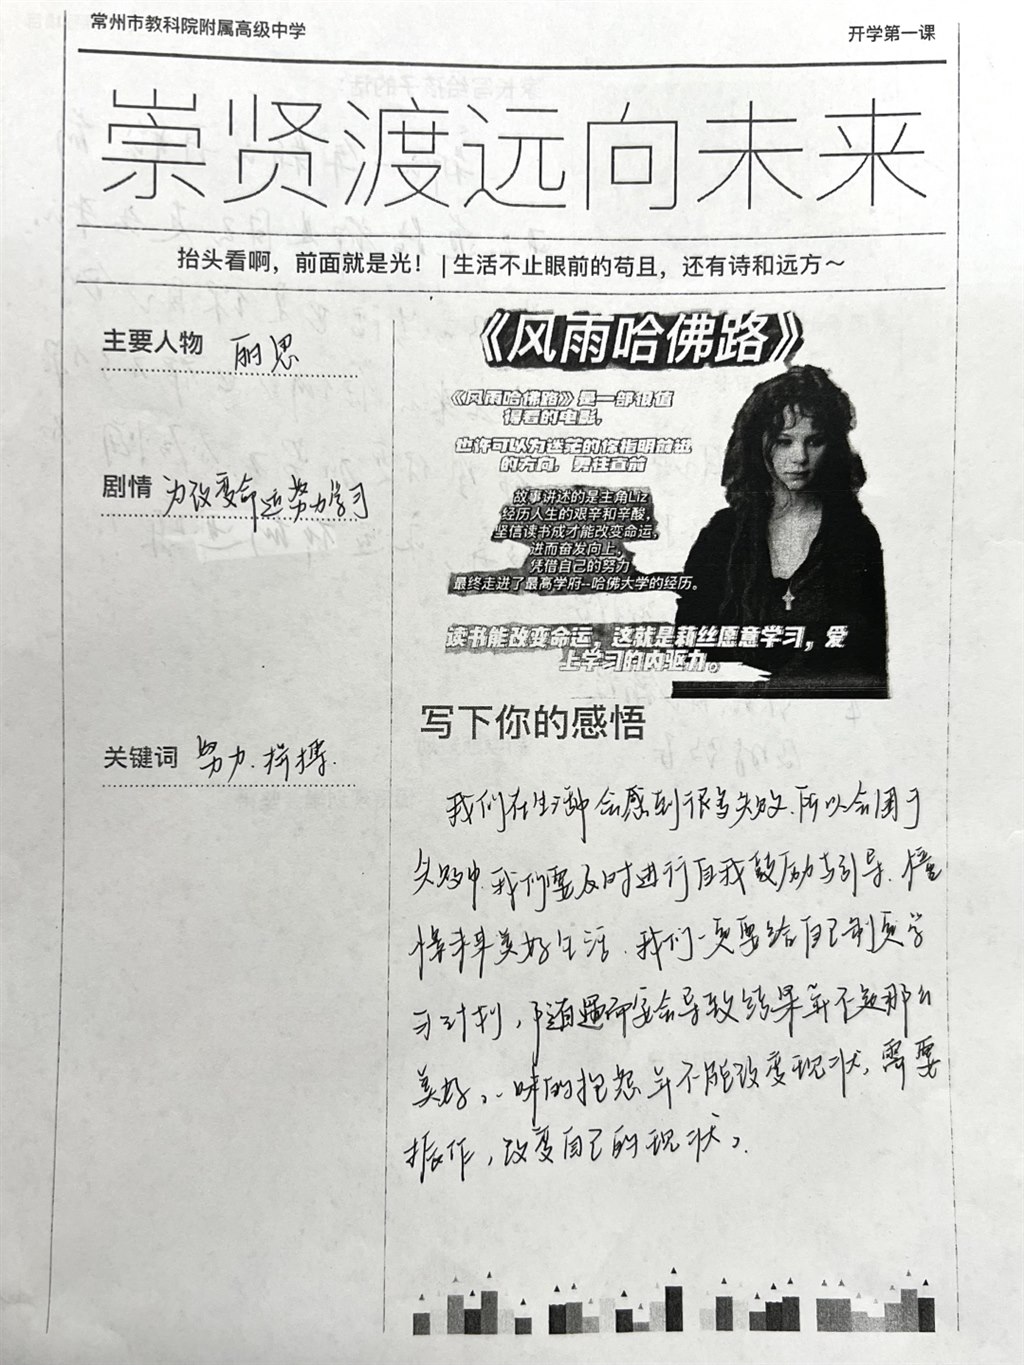 常州市教科院附属高级中学
开学第一课
崇贤渡远向未来
抬头看啊，前面就是光！ | 生活不止眼前的苟且，还有诗和远方～
主要人物 丽思
剧情 为改变命运努力学习
关键词 努力.拼搏.
《风雨哈佛路》
《风雨哈佛路》是一部很值
得看的电影，
也许可以为迷茫的你指明前进
的方向，勇往直前
故事讲述的是主角Liz
经历人生的艰辛和辛酸，
坚信读书成才能改变命运，
进而奋发向上，
凭借自己的努力
最终走进了最高学府--哈佛大学的经历。
读书能改变命运，这就是莉丝愿意学习，爱
上学习的内驱力。
写下你的感悟
我们在生活中会感到很多失败.所以会困于
失败中.我们要及时进行自我鼓励与引导.憧
憬未来美好生活.我们一定要给自己制定学
习计划，随遇而安会导致结果并不是那么
美好，一味的抱怨并不能改变现状，需要
振作，改变自己的现状。